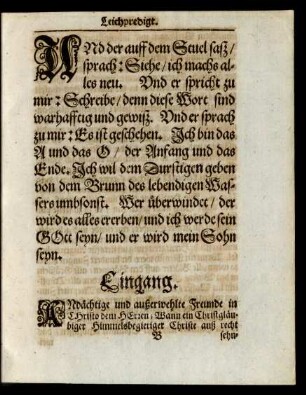 Leichpredigt.
UNd der auff dem Stuel saß/
sprach: Sihe/ ich machs al-
les neu. Und er spricht zu
mir: Schreibe/ denn diese Wort sind
warhafftig und gewiß. Und er sprach
zu mir: Es ist geschehen. Ich bin das
A und das O/ der Anfang und das
Ende. Ich wil dem Durstigen geben
von dem Brunn des lebendigen Was-
sers umbsonst. Wer überwindet/ der
wird es alles ererben/ und ich werde sein
GOtt seyn/ und er wird mein Sohn
seyn.
Eingang.
ANdächtige und außerwehlte Freunde in
CHristo dem HErren: Wann ein Christgläu-
biger Himmelsbegieriger Christe auß recht
B sehn-